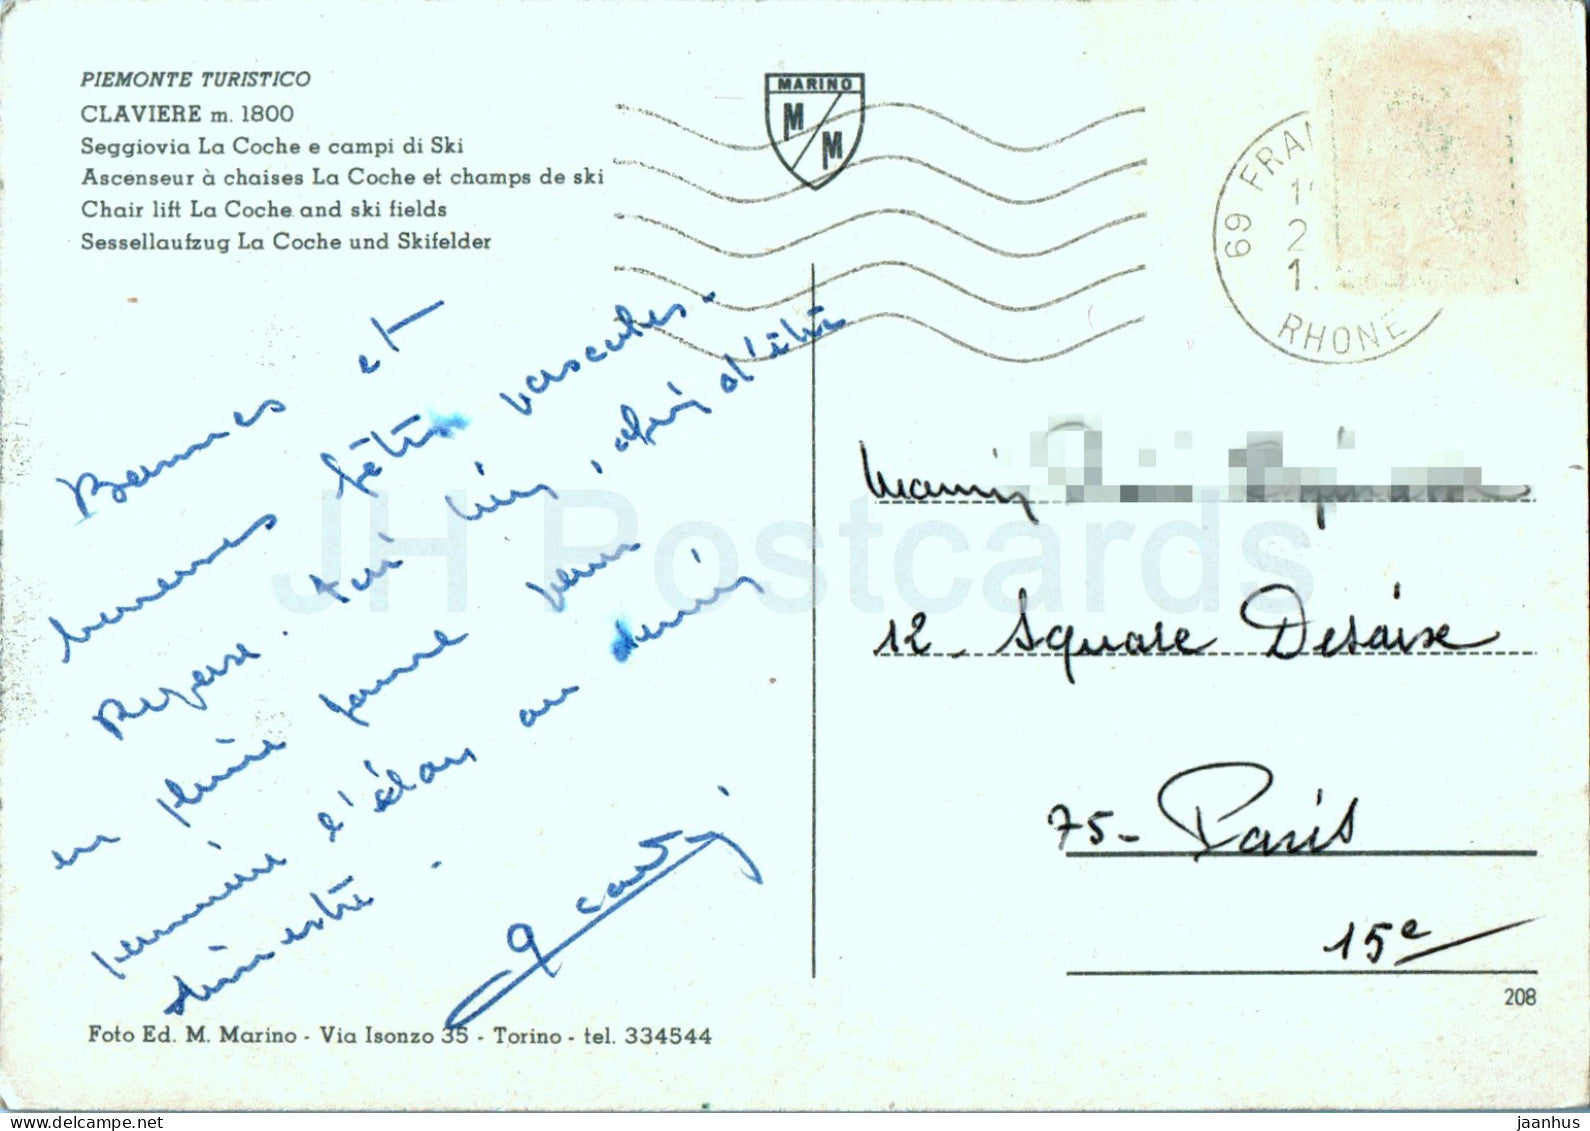 PIEMONTE TURISTICO
CLAVIERE m. 1800
Seggiovia La Coche e campi di Ski
Ascenseur à chaises La Coche et champs de ski
Chair lift La Coche and ski fields
Sessellaufzug La Coche und Skifelder
MARINO
M
M
69 FRAN
RHONE
Bonnes et
heureuses fêtes pascales.
Repose-toi bien, afin d'être
en pleine forme pour
l'élan du dernier
trimestre.
12 - Square Desaix
75 - Paris
15e
208
Foto Ed. M. Marino - Via Isonzo 35 - Torino - tel. 334544
JH Postcards
delcampe.net
jaanhus